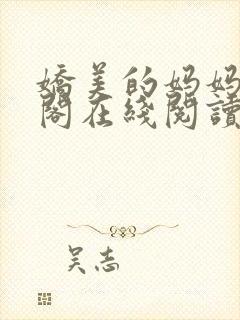 嬌美的妈妈
閣在綫閱讀
吴志